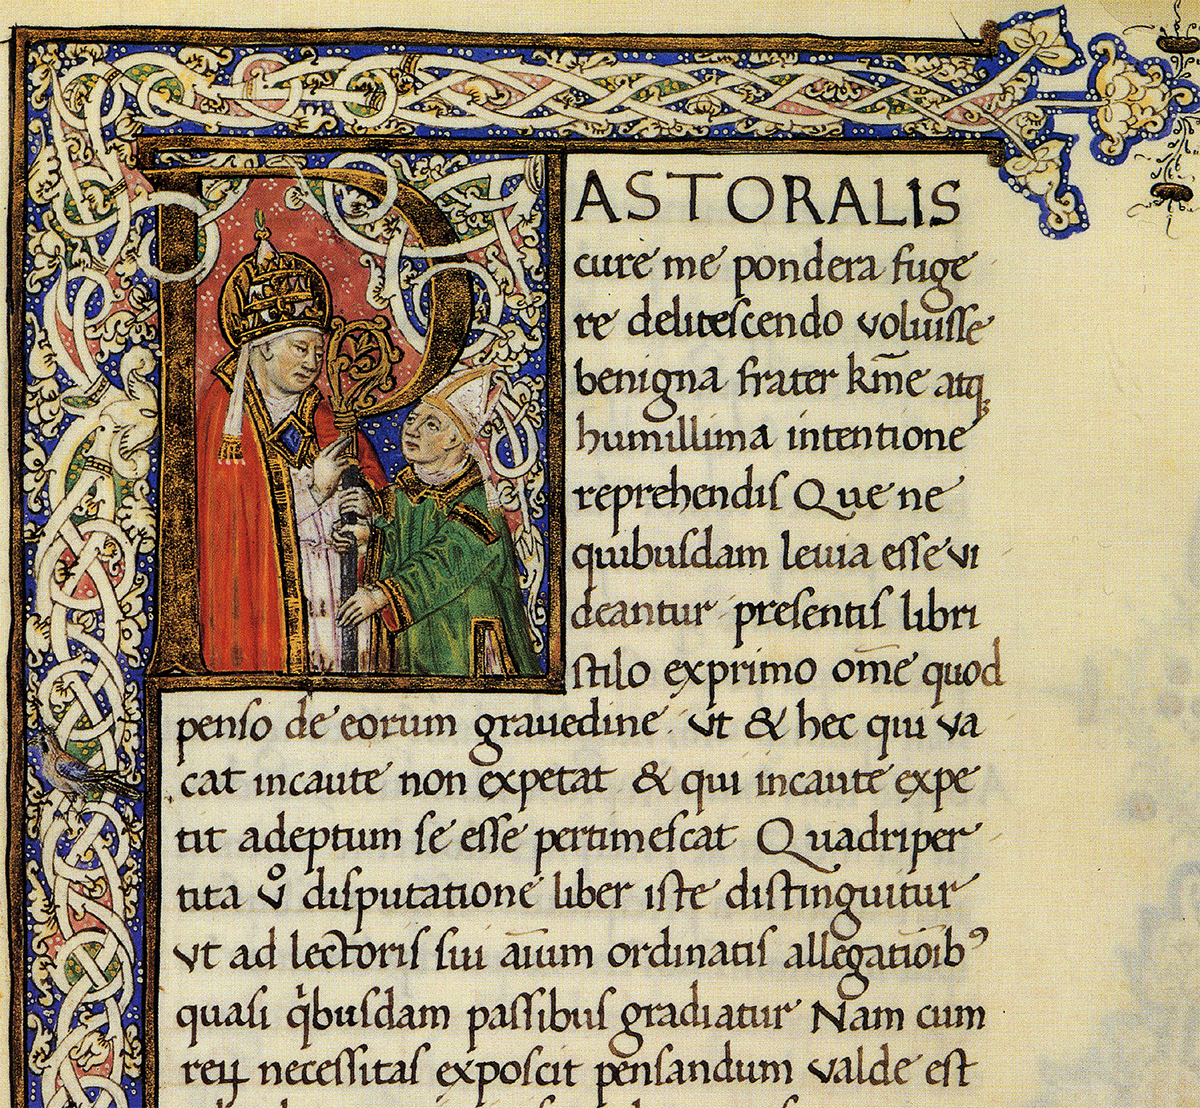 PASTORALIS
cure me pondera fuge
re deliteſcendo voluiſſe
benigna frater km̄e atq;
humillima intentione
reprehendiſ Que ne
quibuſdam leuia eſſe vi
deantur preſentiſ libri
ſtilo exprimo om̄e quod
penſo de eorum grauedine. vt & hec qui va
cat incaute non expetat & qui incaute expe
tit adeptum ſe eſſe pertimeſcat Quadriper
tita vͦ diſputatione liber iſte diſtinguitur
vt ad lectoris ſui aīum ordinatiſ allegatiōibꝰ
quaſi qͥbuſdam paſſibuſ gradiatur Nam cum
reꝝ neceſſitaſ expoſcit penſandum valde eſt